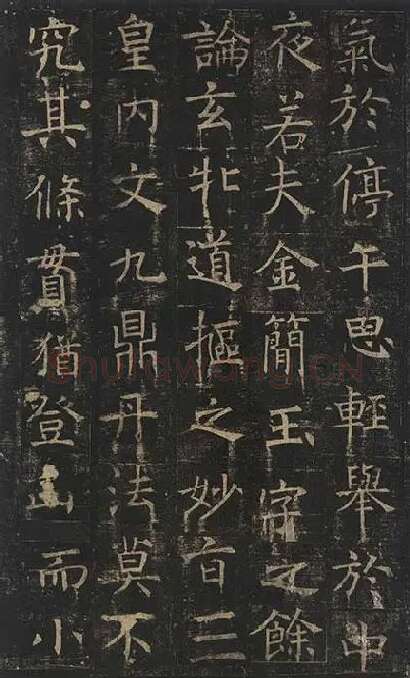 氣於停午思輕舉於中
夜若夫金簡玉字之餘
論玄牝道樞之妙旨三
皇內文九鼎丹法莫不
究其條貫猶登山而小
Shufawang.CN